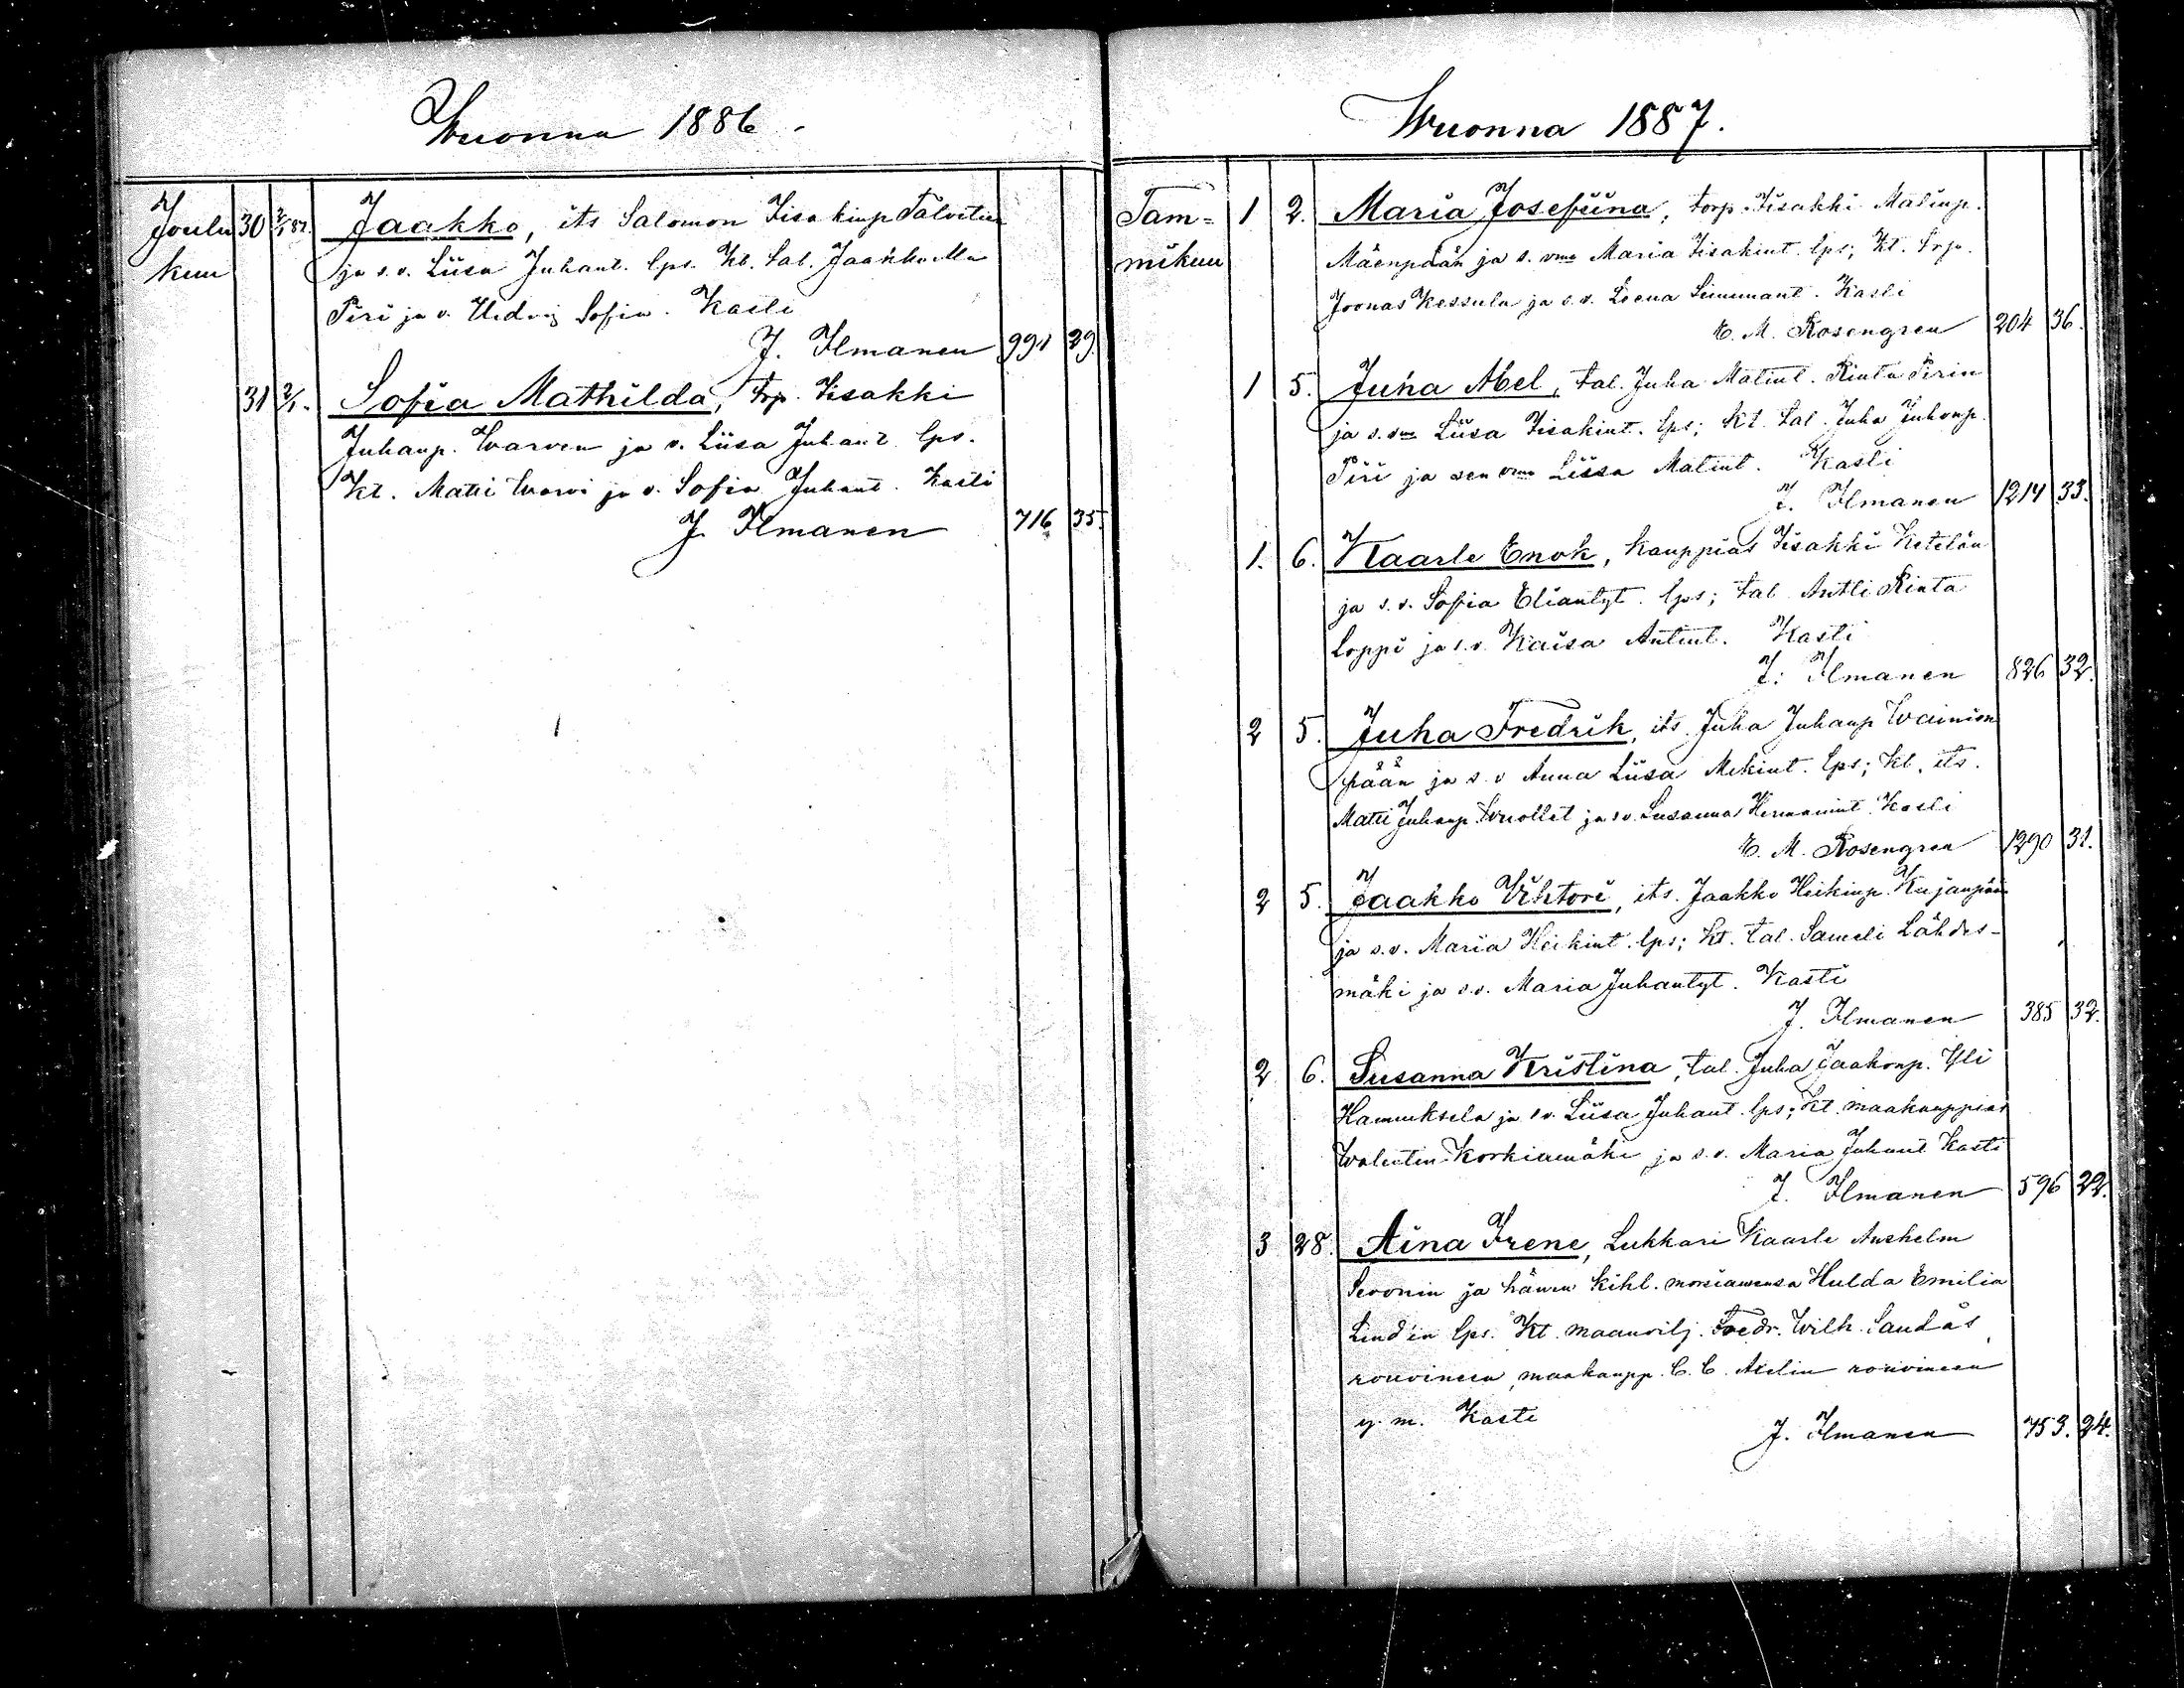 Wuonna 1886.
Joulu 30 2/1 87. Jaakko, its Salomon Iisakinp Talvitien
kuu ja s.v. Liisa Juhant. lps. Kt. tal. Jaakko Ala
Piri ja v. Hedvig Sofia. Kasti
J. Ilmanen 991 29.
31 2/1. Sofia Mathilda, trp. Iisakki
Juhanp. Warven ja v. Liisa Juhant. lps.
Kt. Matti Warvi ja v. Sofia Juhant. Kasti
J. Ilmanen 716 35.
Wuonna 1887.
Tam= 1 2. Maria Josefiina, torp. Iisakki Matinp.
mikuu Mäenpään ja s. vmo Maria Iisakint. lps; Kt. trp.
Joonas Kessula ja s.v. Leena Simmant. Kasti
E. M. Rosengren 204 36.
1 5. Juha Abel, tal. Juha Matint. Rinta Pirin
ja s. vmo Liisa Iisakint. lps; Kt. tal. Juha Juhonp.
Piri ja sen vmo Liisa Matint. Kasti
J. Ilmanen 1214 33.
1. 6. Kaarle Enok, kauppias Iisakki Ketelän
ja s.v. Sofia Eliantyt. lps; tal. Antti Rinta
Loppi ja s.v. Kaisa Antint. Kasti
J. Ilmanen 826 32.
2 5. Juha Fredrik, its. Juha Juhanp Wainion
pään ja s.v Anna Liisa Mikint. lps; Kt. its.
Matti Juhanp. ja s.v. Susanna Hermannint. Kasti
E. M. Rosengren 1290 31.
2 5. Jaakko Vihtori, its. Jaakko Heikinp. Kujanpään
ja s.v. Maria Heikint. lps; Kt. tal. Sameli Lähdes-
mäki ja s.v. Maria Juhantyt. Kasti
J. Ilmanen 385 32.
2 6. Susanna Kristina, tal. Juha Jaakonp. Yli
Hannuksela ja s.v. Liisa Juhant. lps; Kt. maakauppias
Walentin Korkiamäki ja s.v. Maria Juhant Kasti
J. Ilmanen 596 22.
3 28. Aina Irene, Lukkari Kaarle Anshelm
Sevonin ja hänen kihl. morsiamensa Hulda Emilia
Lind'in lps. Kt. maanvilj. Fredr. Wilh. Sandås
rouvineen, maakaupp. C. C. rouvineen
y. m. Kasti
J. Ilmanen 753. 24.